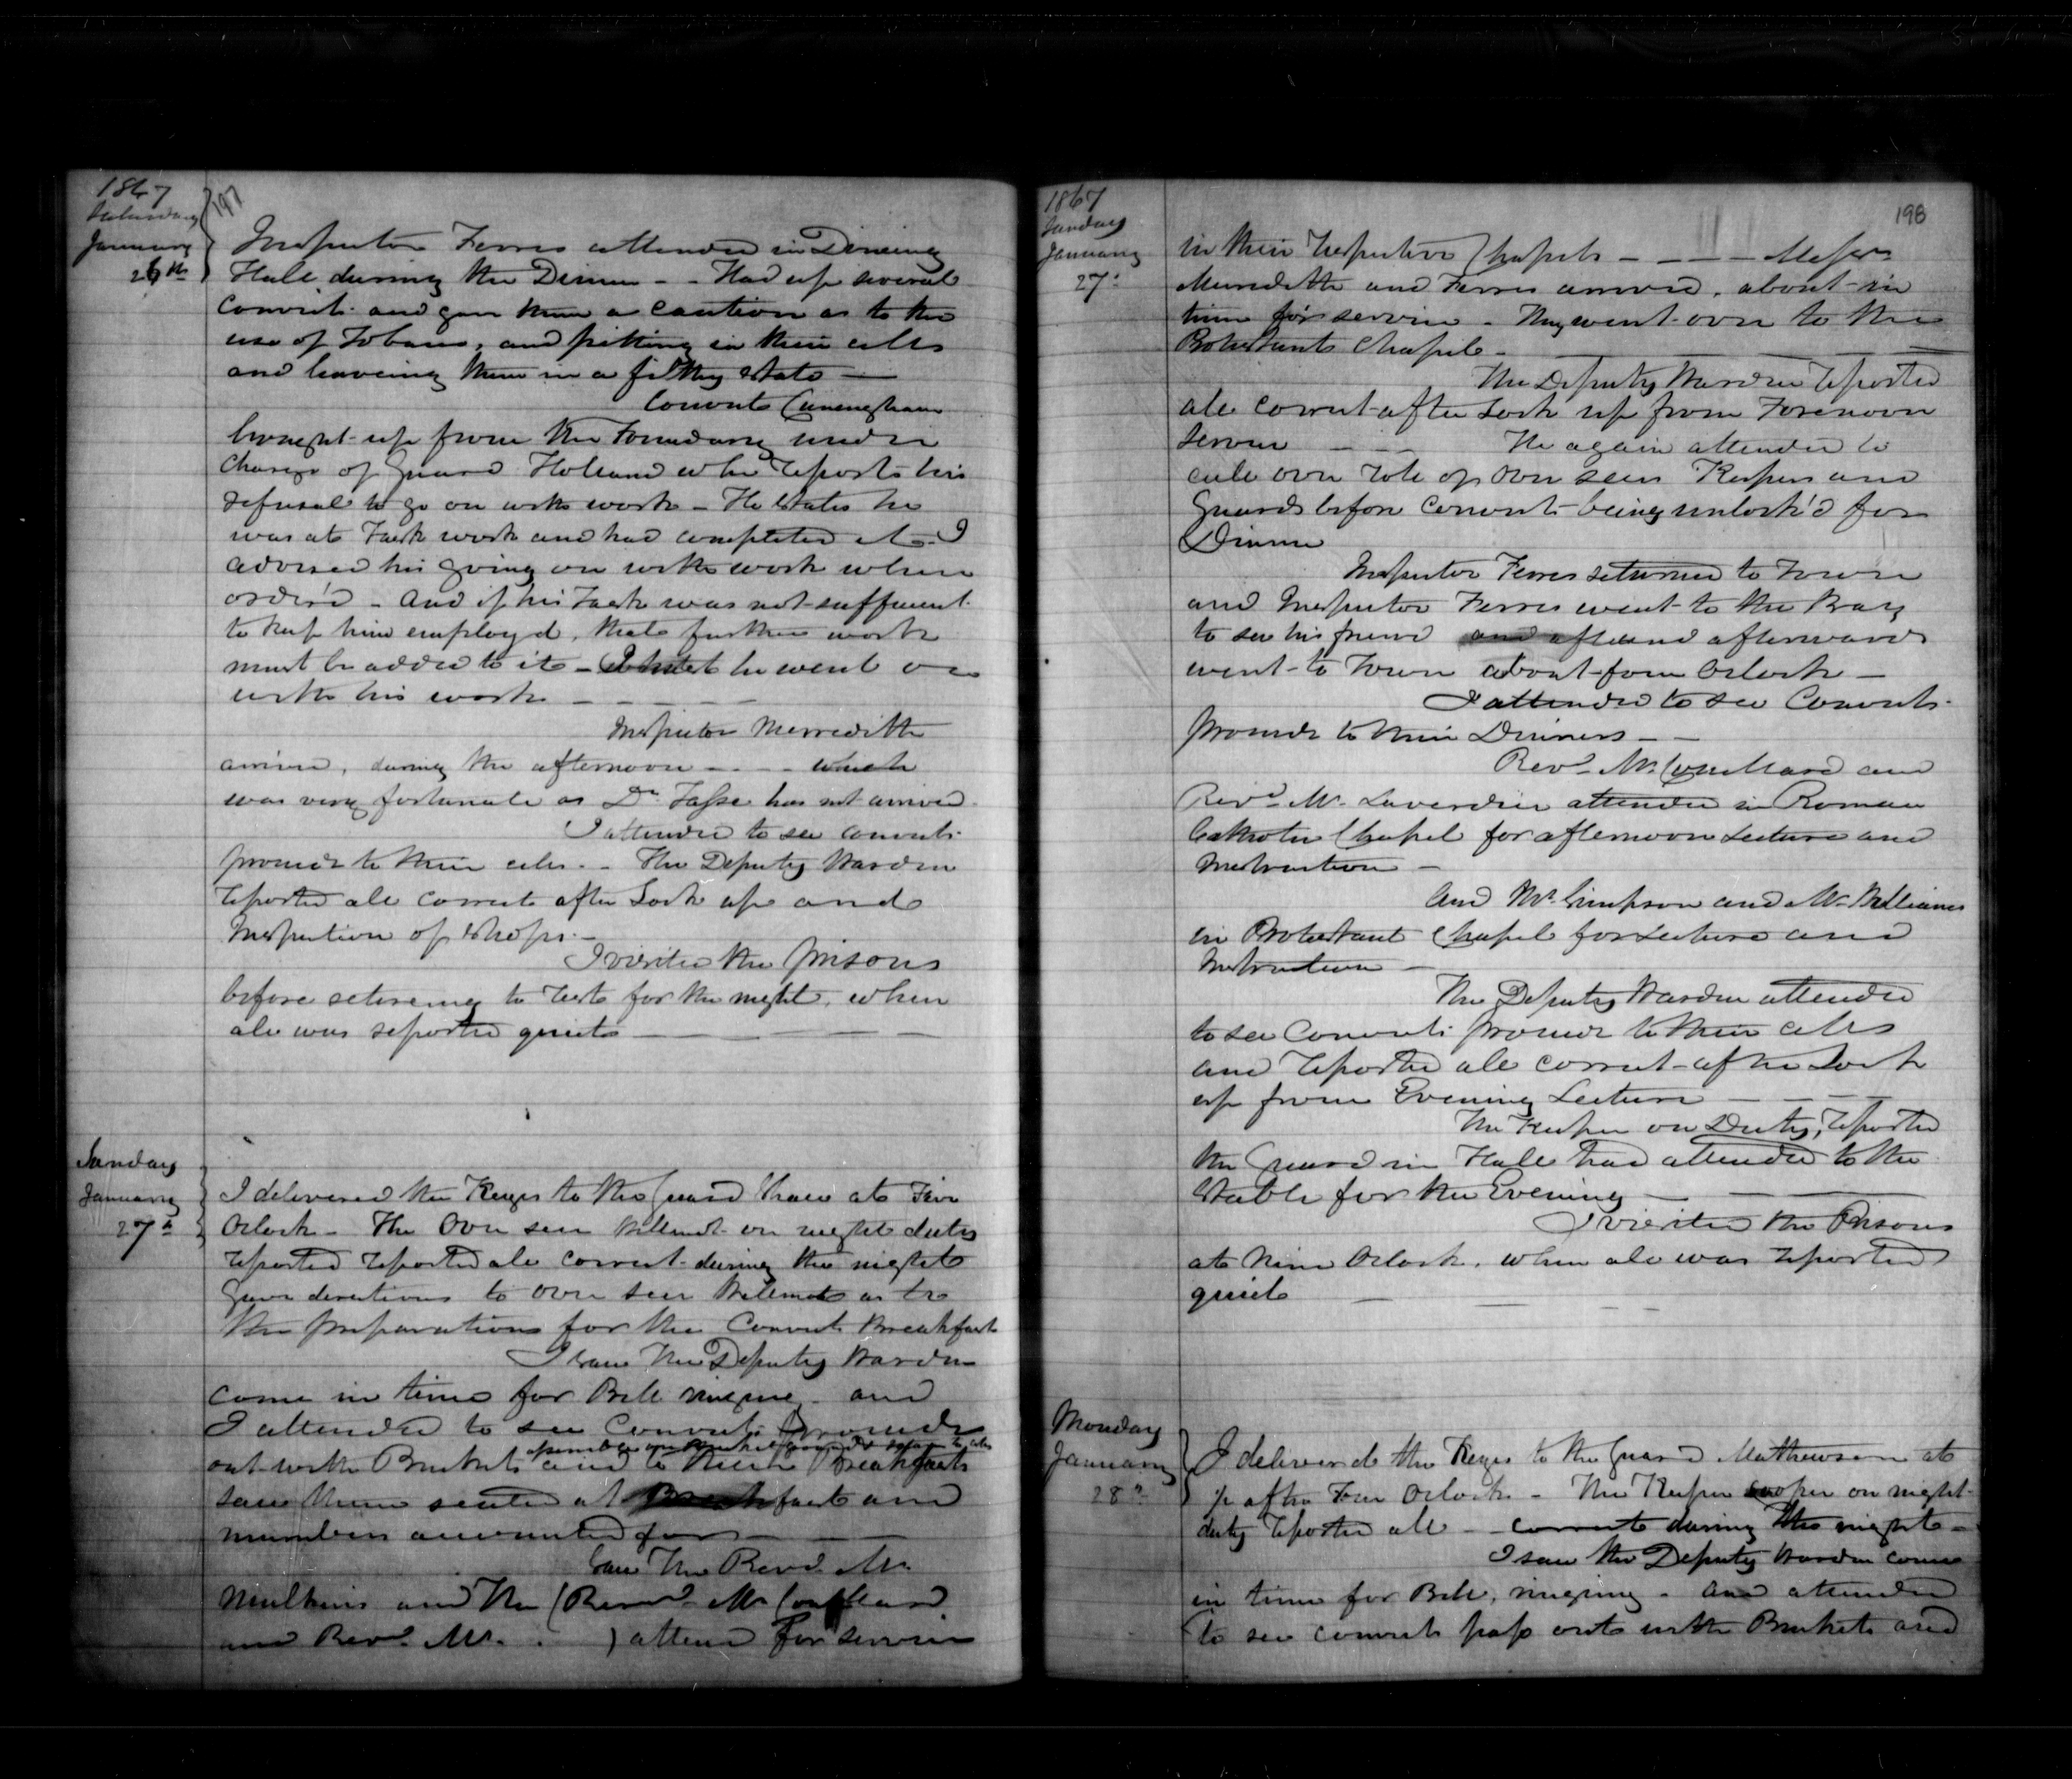 1867
197
Saturday
January
26th
Inspector Ferres attended in Dineing
Hall during the Dinner - - Had up several
convicts and gave them a caution as to the
use of Tobacco, and spitting in their cells
and leaveing them in a filthy state —
Convict Cuninghame
brought up from the Foundary under
charge of Guard Holland who reports his
refusal to go on with work - He states he
was at Task work and had completed it - I
advised his going on with work when
order'd - and if his Task was not sufficient
to keep him employ'd, that further work
must be added to it - he went on
with his work - - - -
Inspector Merredith
arrived, during the afternoon - - - which
was very fortunate as Dr Tasse has not arrived
I attended to see convicts
proceed to their cells - - The Deputy Warden
reported all correct after Lock up and
Inspection of Shops -
I visited the prisons
before retireing to rest for the night, when
all was reported quiet —
Sunday
January
27th
I delivered the Keys to the Guard at Five
Oclock - The Over seer on night duty
reported reported all correct during the night
Gave directions to over seer as to
the preparations for the Convicts Breakfast
I saw The Deputy Warden
come in time for Bell ringing and
I attended to see Convicts proceed
out with Buckets and to their Breakfasts
saw them seated at Breakfast and
numbers accounted for — —
Saw The Revd Mr
Mulkins and The (Revd Mr
and Revd Mr. ) attend for service
1867
198
Sunday
January
27th
in their respective Chapels - - - - Messrs
Meredith and Ferres arrived, about in
time for service - They went over to the
Protestant Chapel - — — —
The Deputy Warden reported
all correct after Lock up from Forenoon
service - - - He again attended to
call over role of Over seers Keepers and
Guards before convicts being unlock'd for
Dinner
Inspector Ferres returned to Town
and Inspector Ferres went to the Bay
to see his friend and afterwards
went to Town about four Oclock —
I attended to see Convicts
proceed to their Dinners - -
Revd Mr and
Revd Mr. Laverdier attended in Roman
Catholic Chapel for afternoon Lecture and
Instruction -
And Mr Simpson and Mr Milliams
in Protestant Chapel for Lecture and
Instruction -
The Deputy Warden attended
to see Convicts proceed to their cells
and reported all correct after Lock
up from Evening Lecture - - - -
The Keeper on Duty, reported
the Guard in Hall had attended to the
Stable for the Evening — — —
I visited the Prisons
at Nine Oclock, when all was reported
quiet — — - -
Monday
January
28th
I delivered the Keys to the Guard Mathewson at
1/2 after Four Oclock - The Keeper on night
duty reported all - - correct during the night -
I saw the Deputy Warden come
in time for Bell, ringing - and attended
to see convicts pass out with Buckets and